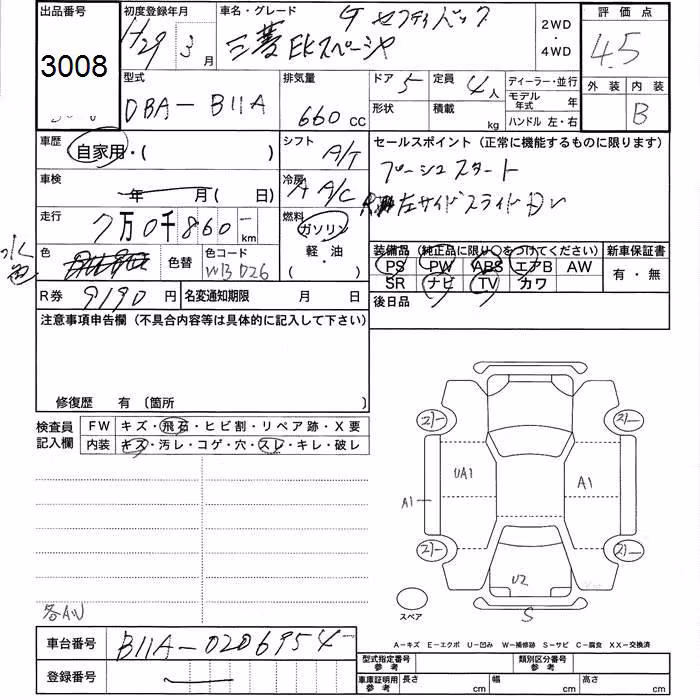 出品番号 初度登録年月 車名・グレード 評価点
3008 H29 3月 三菱 EKスペース G セーフティパック 2WD・4WD 4.5
外装 内装
B
型式 排気量 ドア 5 定員 4人 ディーラー・並行
DBA-B11A 660cc 形状 積載 kg モデル年式 年
ハンドル 左・右
車歴 シフト セールスポイント (正常に機能するものに限ります)
自家用・( ) A/T プッシュスタート
車検 年 月( 日) 冷房 A A/C 左サイドスライドドア
走行 7万0千860 km 燃料 ガソリン
水色
色 色替 色コード 軽油 装備品 (純正品に限り○をつけてください) 新車保証書
( ) PS PW ABS エアB AW 有・無
R券 9190円 名変通知期限 月 日 SR ナビ TV カワ
後日品
注意事項申告欄 (不具合内容等は具体的に記入して下さい)
修復歴 有 〔箇所 〕
検査員記入欄 FW キズ・飛石・ヒビ割・リペア跡・X要
内装 キズ・汚レ・コゲ・穴・スレ・キレ・破レ
UA1
A1
A1
U2
S
スペア
各AU
A-キズ E-エクボ U-凹み W-補修跡 S-サビ C-腐食 XX-交換済
車台番号 B11A-0206954
型式指定番号 参考 類別区分番号 参考
登録番号 車庫証明用 参考 長さ cm 幅 cm 高さ cm